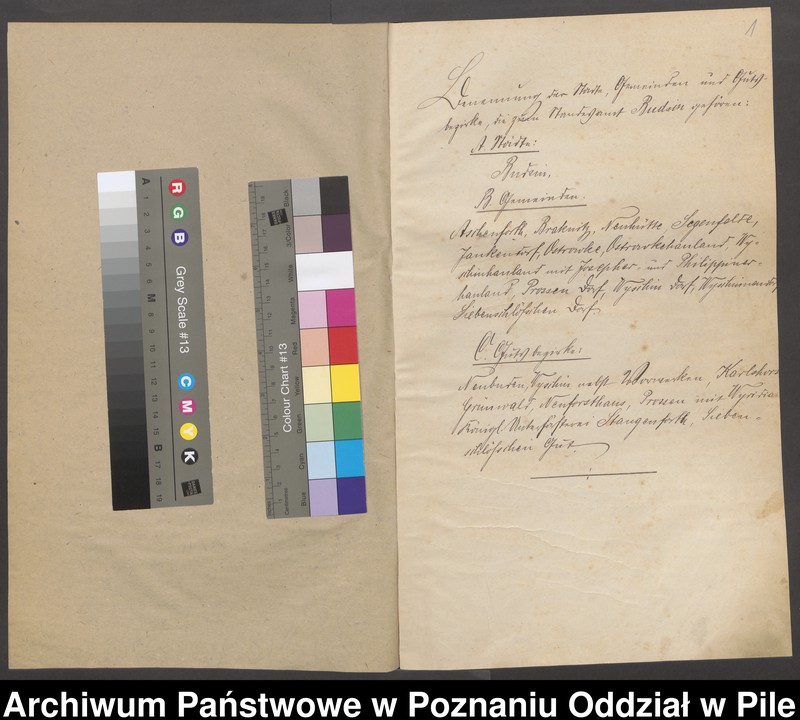 1
Benennung der Städte, Gemeinden und Guts-
bezirke, die zum Standesamt Budsin gehören:
A. Städte:
Budsin.
B. Gemeinden.
Aschenforth, Brodnitz, Neuhütte, Segenfelde,
Jankendorf, Ostrowke, Ostrowkehauland, Wy-
schinhauland mit Josephs- und Philippiner-
hauland, Prossen Dorf, Wyschin Dorf,
Siebenschlößchen Dorf
C. Gutsbezirke:
Neubuden, Wyschin nebst Vorwerken, Karlshorst
Grünwald, Neuforsthaus, Prossen mit
Königl. Unterförsterei Stangenforth, Sieben-
schlößchen Gut.
A 1 2 3 4 5 6 M 8 9 10 11 12 13 14 15 B 17 18 19
R G B
Grey Scale #13
C M Y K
Colour Chart #13
Blue Cyan Green Yellow Red Magenta White 3/Color Black
Centimetres
Archiwum Państwowe w Poznaniu Oddział w Pile